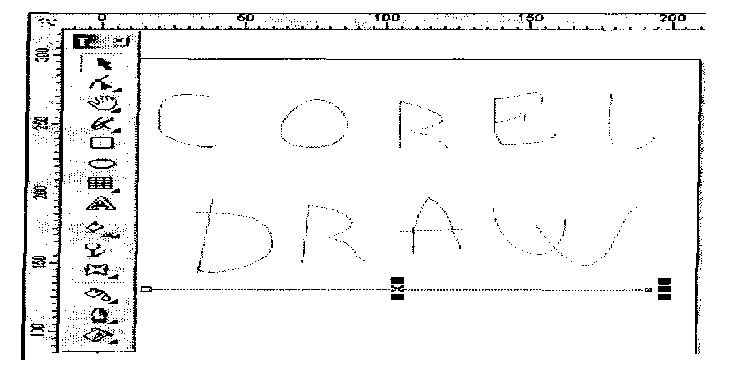 0 50 100 150 200
300
250
200
150
100
COREL
DRAW